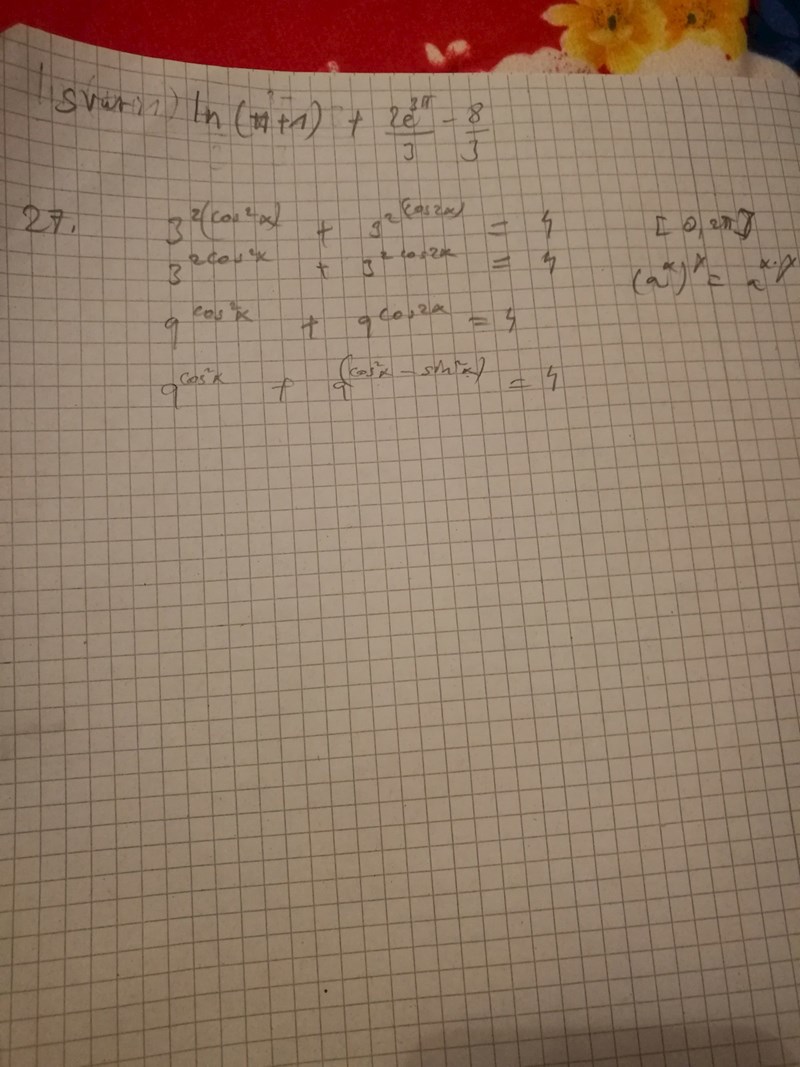 ln(π+1) + 2e^3π/3 - 8/3
27. 3^2(cos²x) + 3^2(cos2x) = 4 [0, 2π]
3^2cos²x + 3^2cos2x = 4 (a^x)^y = a^x·y
9^cos²x + 9^cos2x = 4
9^cos²x + 9^(cos²x - sin²x) = 4